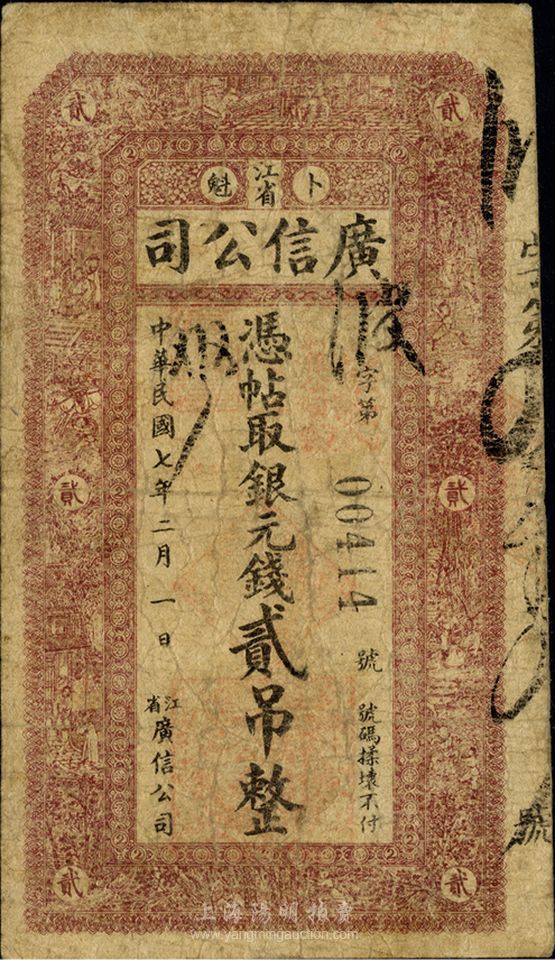 貳 貳
卜 江省 魁
廣信公司
字第 00414 號 號碼揉壞不付
憑帖取銀元錢貳吊整
中華民國七年二月一日
江省 廣信公司
貳 貳
貳 貳
號
上海陽明拍賣
www.yangmingauction.com